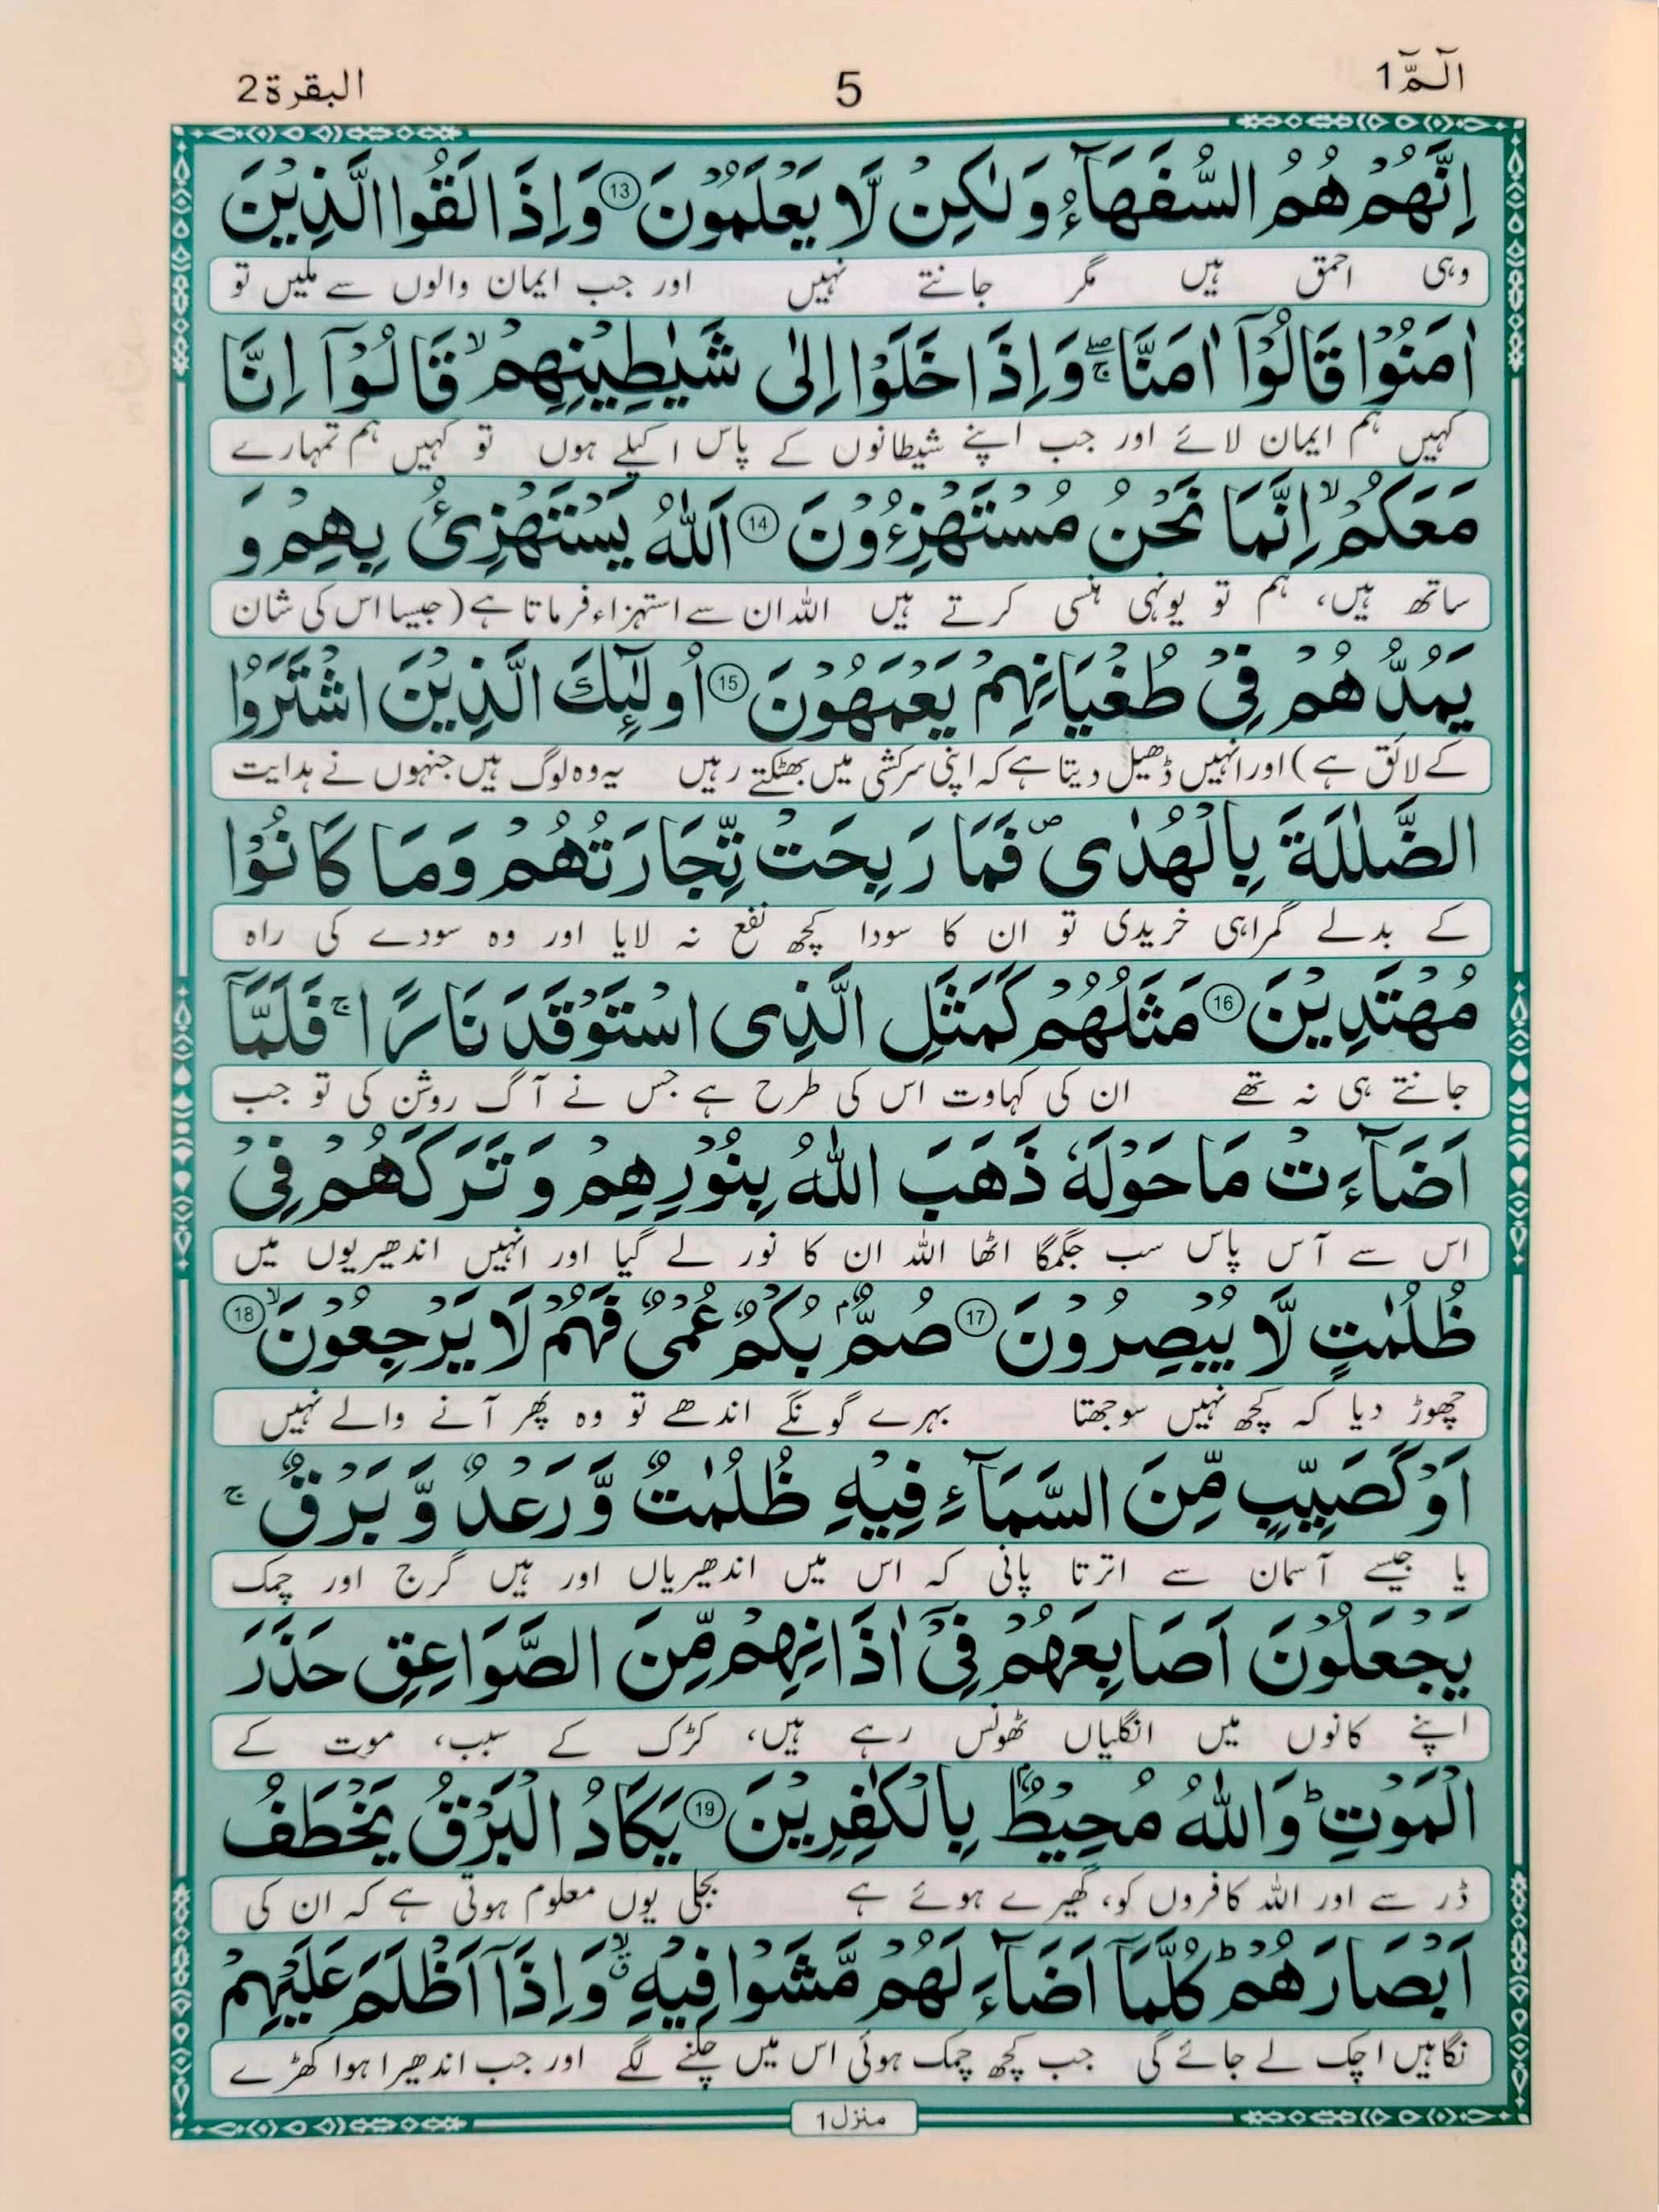 الٓمّٓ 1 5 البقرة 2
اِنَّهُمْ هُمُ السُّفَهَآءُ وَلٰكِنْ لَّا يَعْلَمُوْنَ ⑬ وَاِذَا لَقُوا الَّذِيْنَ
وہی احمق ہیں مگر جانتے نہیں اور جب ایمان والوں سے ملیں تو
اٰمَنُوْا قَالُوْٓا اٰمَنَّا ۚۖ وَاِذَا خَلَوْا اِلٰى شَيٰطِيْنِهِمْ ۙ قَالُوْٓا اِنَّا
کہیں ہم ایمان لائے اور جب اپنے شیطانوں کے پاس اکیلے ہوں تو کہیں ہم تمہارے
مَعَكُمْ ۙ اِنَّمَا نَحْنُ مُسْتَهْزِءُوْنَ ⑭ اَللّٰهُ يَسْتَهْزِئُ بِهِمْ وَ
ساتھ ہیں، ہم تو یونہی ہنسی کرتے ہیں اللہ ان سے استہزاء فرماتا ہے (جیسا اس کی شان
يَمُدُّهُمْ فِيْ طُغْيَانِهِمْ يَعْمَهُوْنَ ⑮ اُولٰٓئِكَ الَّذِيْنَ اشْتَرَوُا
کے لائق ہے) اور انہیں ڈھیل دیتا ہے کہ اپنی سرکشی میں بھٹکتے رہیں یہ وہ لوگ ہیں جنہوں نے ہدایت
الضَّلٰلَةَ بِالْهُدٰى ۪ فَمَا رَبِحَتْ تِّجَارَتُهُمْ وَمَا كَانُوْا
کے بدلے گمراہی خریدی تو ان کا سودا کچھ نفع نہ لایا اور وہ سودے کی راہ
مُهْتَدِيْنَ ⑯ مَثَلُهُمْ كَمَثَلِ الَّذِى اسْتَوْقَدَ نَارًا ۚ فَلَمَّآ
جانتے ہی نہ تھے ان کی کہاوت اس کی طرح ہے جس نے آگ روشن کی تو جب
اَضَآءَتْ مَا حَوْلَهٗ ذَهَبَ اللّٰهُ بِنُوْرِهِمْ وَتَرَكَهُمْ فِيْ
اس سے آس پاس سب جگمگا اٹھا اللہ ان کا نور لے گیا اور انہیں اندھیریوں میں
ظُلُمٰتٍ لَّا يُبْصِرُوْنَ ⑰ صُمٌّۢ بُكْمٌ عُمْيٌ فَهُمْ لَا يَرْجِعُوْنَ ۙ ⑱
چھوڑ دیا کہ کچھ نہیں سوجھتا بہرے گونگے اندھے تو وہ پھر آنے والے نہیں
اَوْ كَصَيِّبٍ مِّنَ السَّمَآءِ فِيْهِ ظُلُمٰتٌ وَّرَعْدٌ وَّبَرْقٌ ۚ
یا جیسے آسمان سے اترتا پانی کہ اس میں اندھیریاں اور ہیں گرج اور چمک
يَجْعَلُوْنَ اَصَابِعَهُمْ فِيْٓ اٰذَانِهِمْ مِّنَ الصَّوَاعِقِ حَذَرَ
اپنے کانوں میں انگلیاں ٹھونس رہے ہیں، کڑک کے سبب، موت کے
الْمَوْتِ ؕ وَاللّٰهُ مُحِيْطٌۢ بِالْكٰفِرِيْنَ ⑲ يَكَادُ الْبَرْقُ يَخْطَفُ
ڈر سے اور اللہ کافروں کو، گھیرے ہوئے ہے بجلی یوں معلوم ہوتی ہے کہ ان کی
اَبْصَارَهُمْ ؕ كُلَّمَآ اَضَآءَ لَهُمْ مَّشَوْا فِيْهِ ۙۗ وَاِذَآ اَظْلَمَ عَلَيْهِمْ
نگاہیں اچک لے جائے گی جب کچھ چمک ہوئی اس میں چلنے لگے اور جب اندھیرا ہوا کھڑے
منزل 1